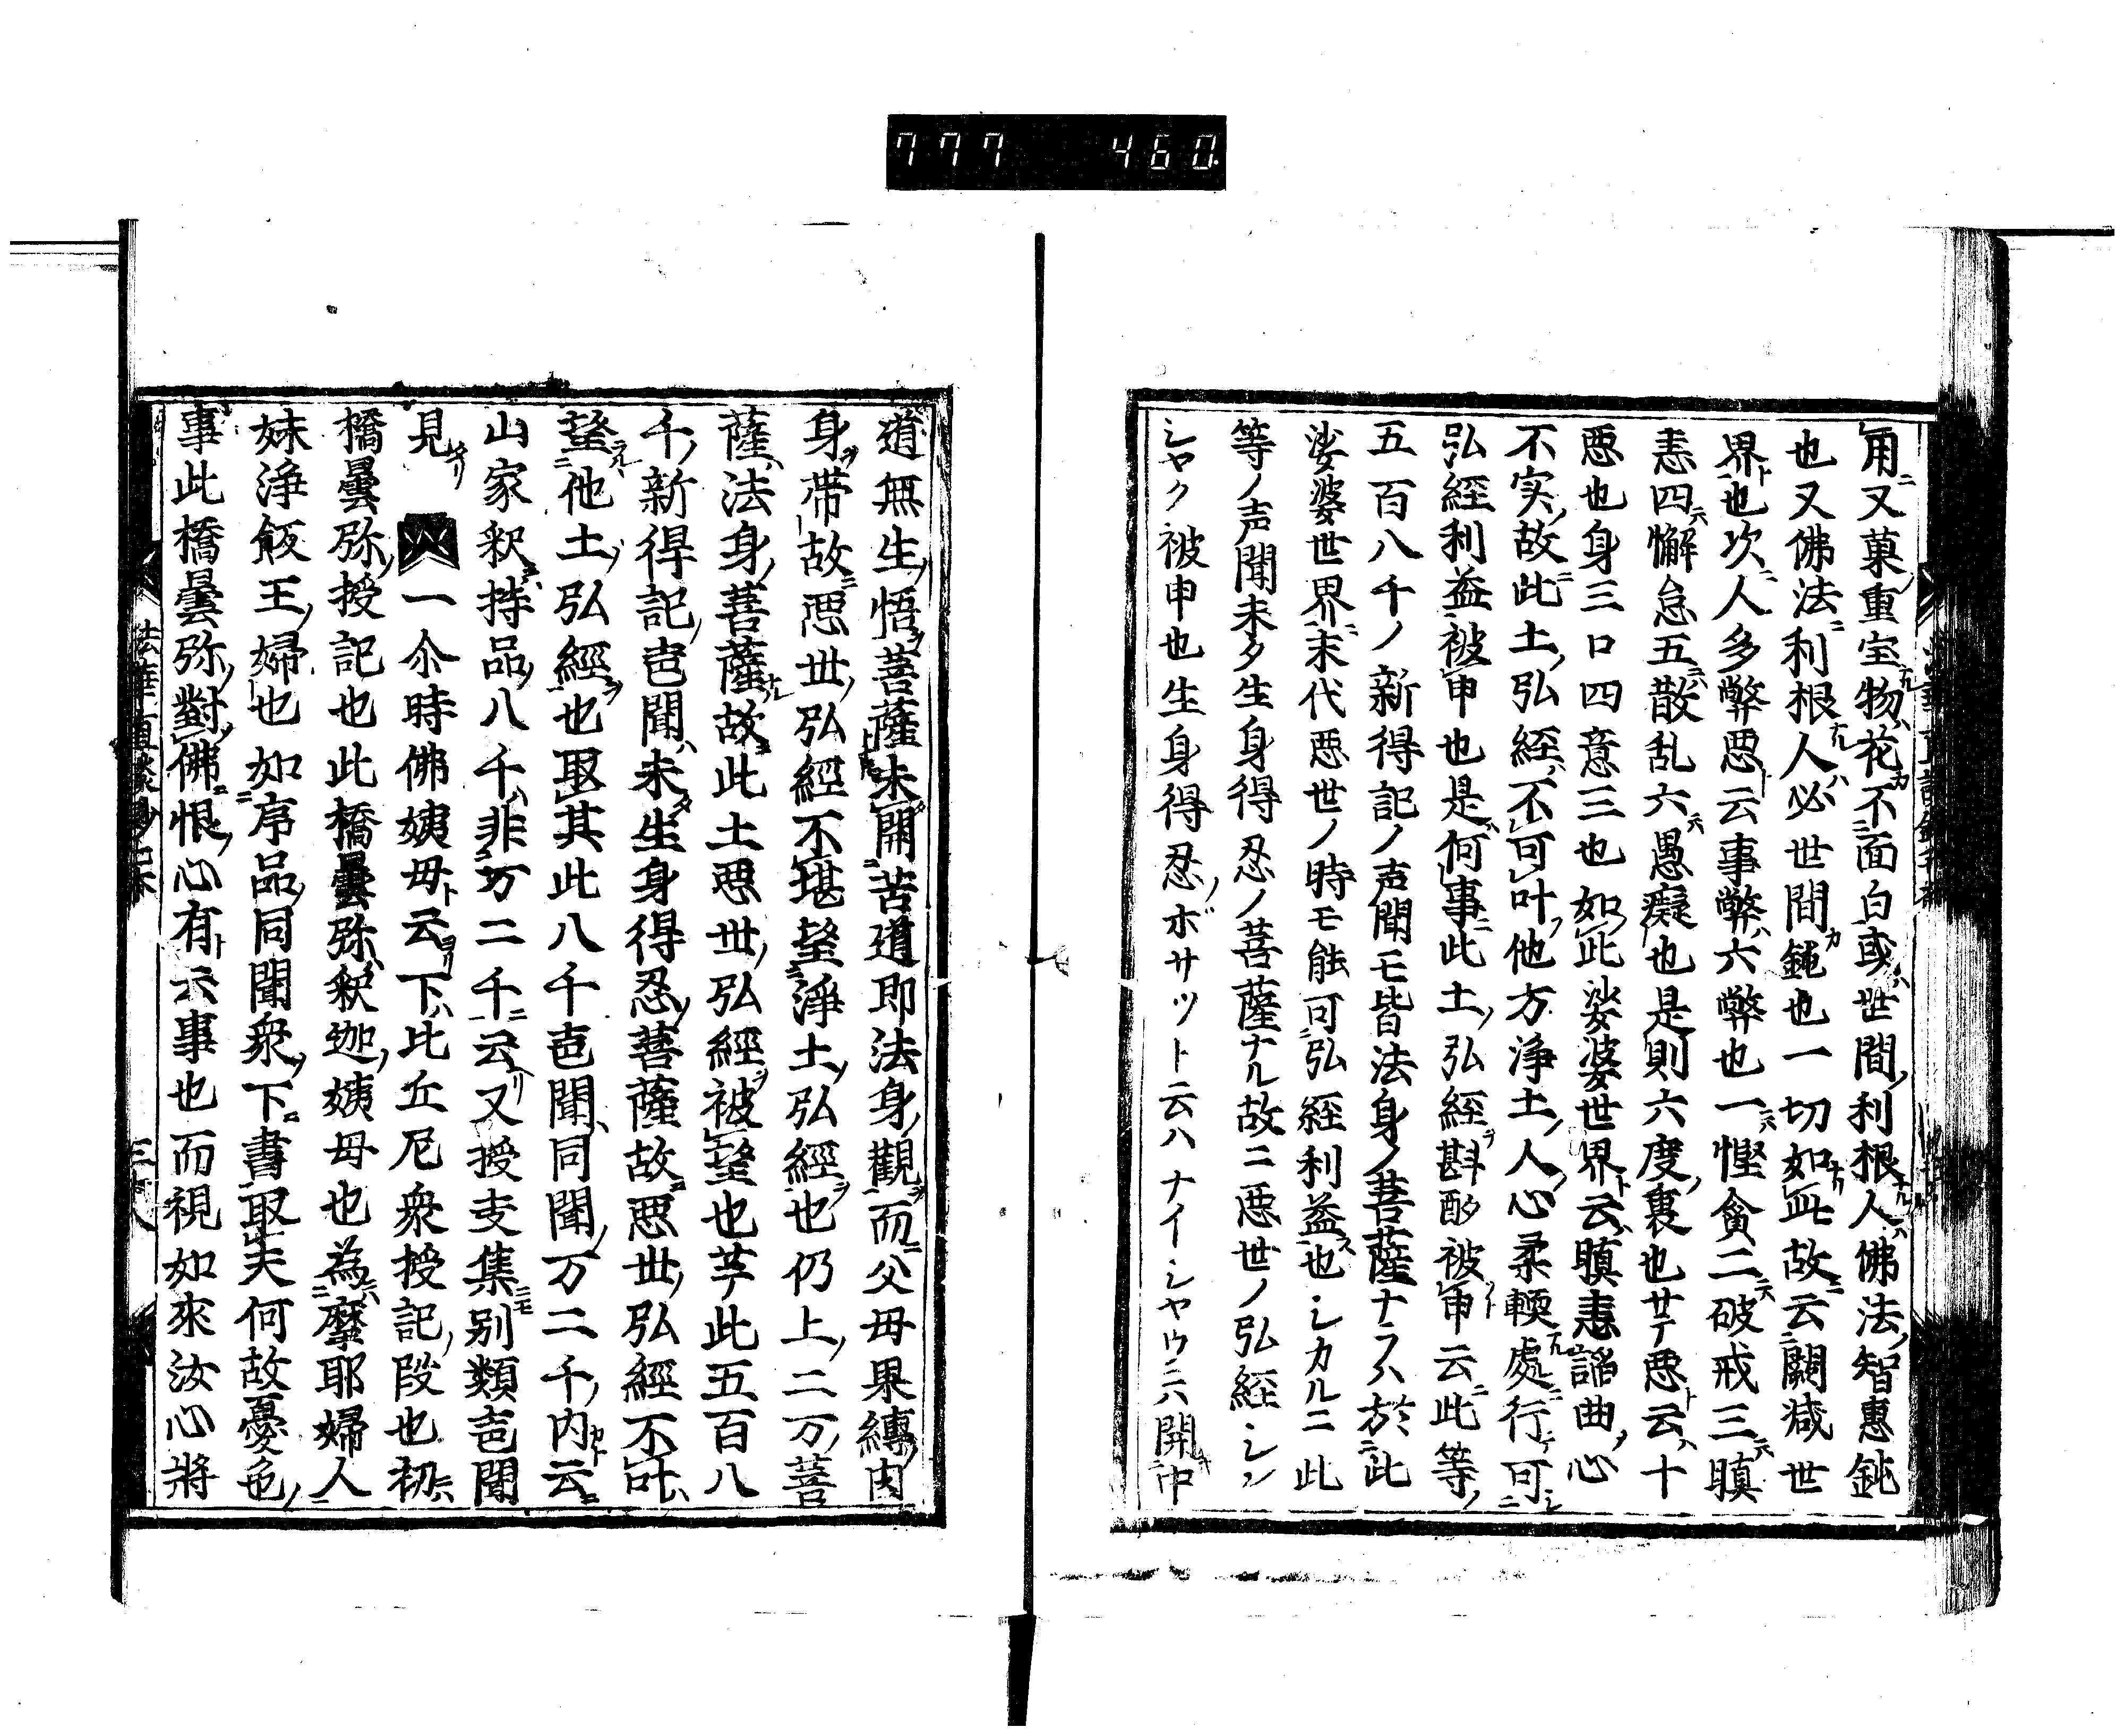 777 460
用又菓重宝物花不面白或世間利根人佛法智惠鈍
也又佛法利根人必世間鈍也一切如此故云鬪減世
界也次人多弊悪云事弊六弊也一慳貪二破戒三瞋
恚四懈怠五散乱六愚癡也是則六度裏也サテ悪云十
悪也身三口四意三也如此娑婆世界云瞋恚諂曲心
不实故此土弘経不可叶他方浄土人心柔輭處行可
弘經利益被申也是何事此土弘經斟酌被申云此等
五百八千ノ新得記ノ声聞モ皆法身ノ菩薩ナラハ於此
娑婆世界末代悪世ノ時モ能可弘経利益也シカルニ此
等ノ声聞未タ生身得忍ノ菩薩ナル故ニ悪世ノ弘経シン
シヤク被申也生身得忍ノボサツト云ハナイシヤウニハ開中
道無生悟菩薩未開苦道即法身觀而父母果縛肉
身帯故悪世弘經不堪望淨土弘經也仍上二万菩
薩法身菩薩故此土悪世弘經被望也𦬇此五百八
千新得記声聞未生身得忍菩薩故悪世弘經不叶
望他土弘經也取其此八千声聞同聞万二千内云
山家釈持品八千非万二千云又授𠭥集別類声聞
見 一尒時佛姨母云下比丘尼衆授記段也初
橋曇弥授記也此橋曇弥釈迦姨母也為摩耶婦人
妹浄飯王婦也如序品同聞衆下書取夫何故憂色
事此橋曇弥對佛恨心有云事也而視如來汝心將
法華直談鈔